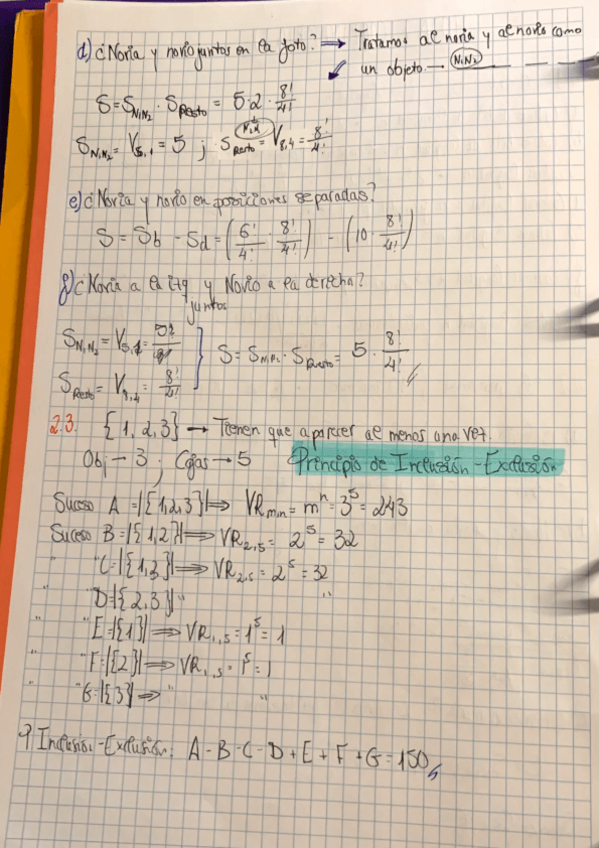 d) ¿Novia y novio juntos en la foto? ⇒ Tratamos al novia y al novio como
un objeto → (N₁N₂) _ _ _ _
S = S_N₁N₂ · S_Resto = 5·2 · 8!/4!
S_N₁N₂ = V₅,₁ = 5 ; S_Resto = V₈,₄ = 8!/4!
e) ¿Novia y novio en posiciones separadas?
S = S_b - S_d = (6!/4! · 8!/4!) - (10 · 8!/4!)
f) ¿Novia a la izq y Novio a la derecha?
juntos
S_N₁N₂ = V₅,₁ =
S_Resto = V₈,₄ = 8!/4! } S = S_N₁N₂ · S_Resto = 5 · 8!/4!
2.3. {1, 2, 3} → Tienen que aparecer al menos una vez.
Obj → 3 ; Cajas → 5 Principio de Inclusión-Exclusión
Suceso A = |{1,2,3}| ⇒ VR_m,n = mⁿ = 3⁵ = 243
Suceso B = |{1,2}| ⇒ VR₂,₅ = 2⁵ = 32
" C = |{1,3}| ⇒ VR₂,₅ = 2⁵ = 32
" D = |{2,3}| " "
" E = |{1}| ⇒ VR₁,₅ = 1⁵ = 1
" F = |{2}| ⇒ VR₁,₅ = 1⁵ = 1
" G = |{3}| ⇒ " "
P Inclusión-Exclusión: A - B - C - D + E + F + G = 150